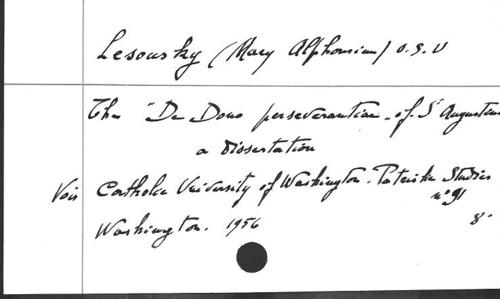 Lesousky (Mary Alphonsine) O.S.U
The "De Dono perseverantiae" of St Augustine
a dissertation
Vois Catholic University of Washington. Patristic Studies
n° 91
Washington. 1956 8°